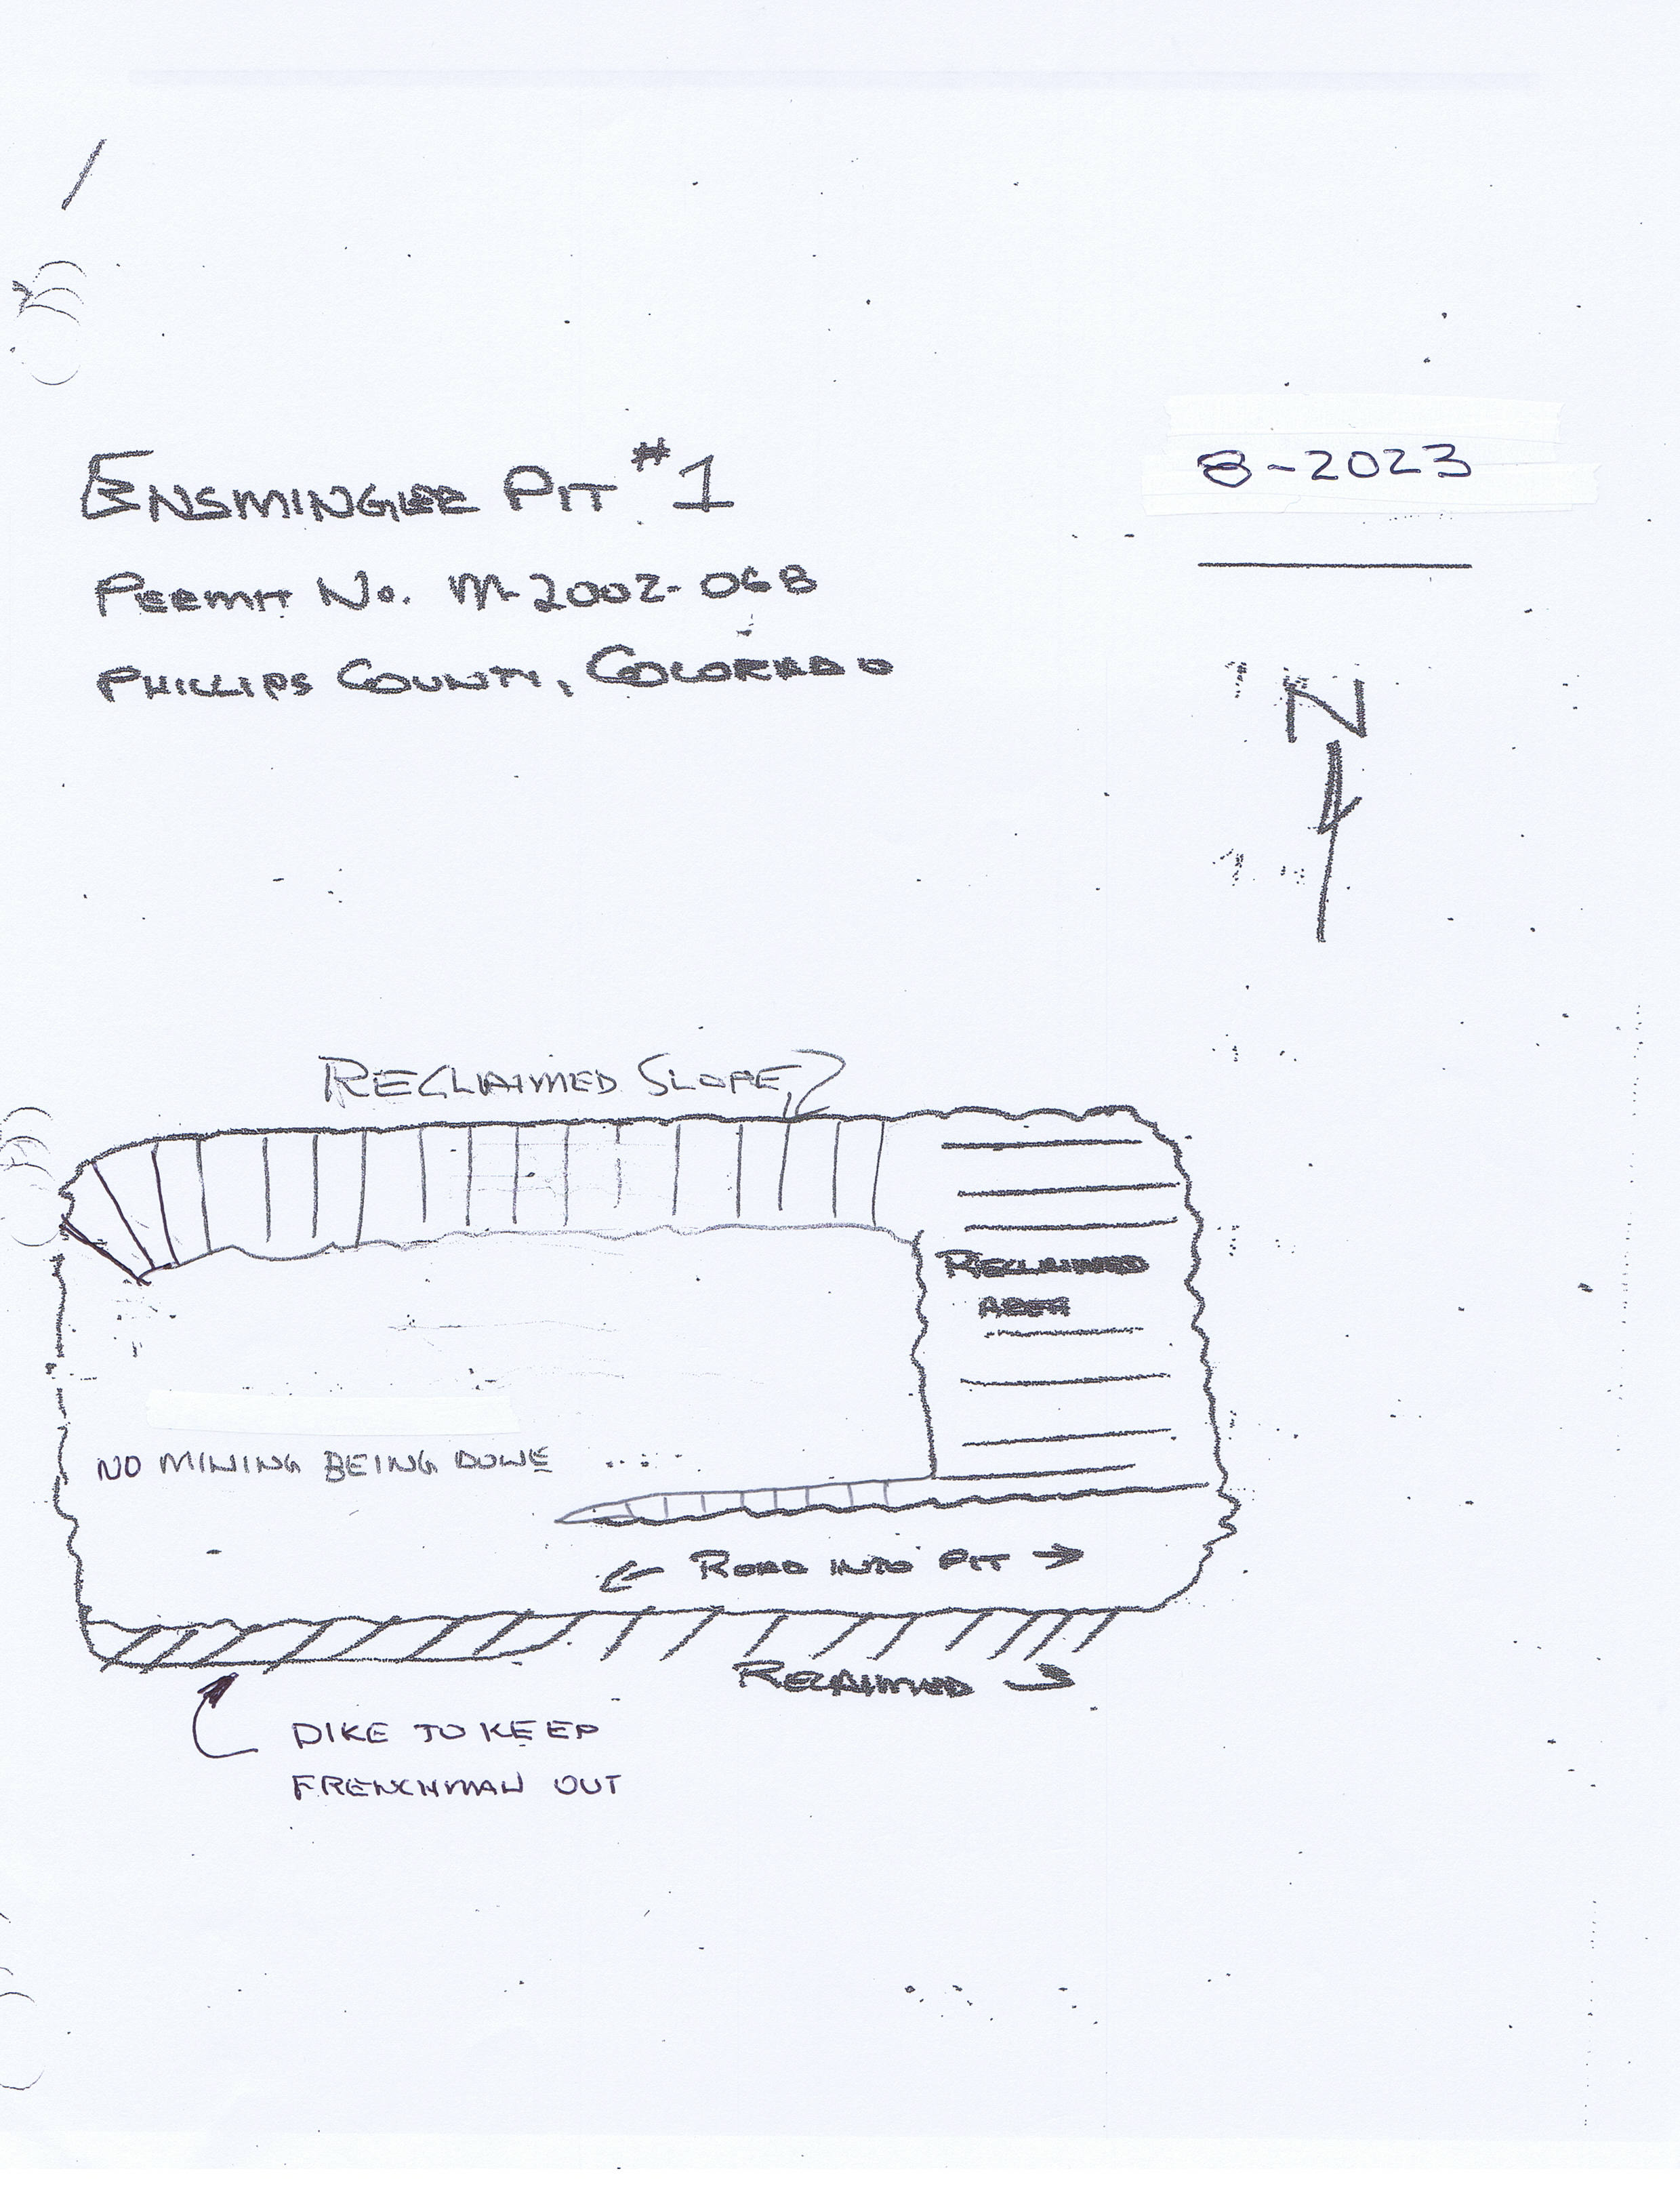 ENSMINGER PIT #1
8-2023
PERMIT No. M-2002-068
PHILLIPS COUNTY, COLORADO
N
RECLAIMED SLOPE
RECLAIMED
AREA
NO MINING BEING DONE
← ROAD INTO PIT →
RECLAIMED →
DIKE TO KEEP
FRENCHMAN OUT